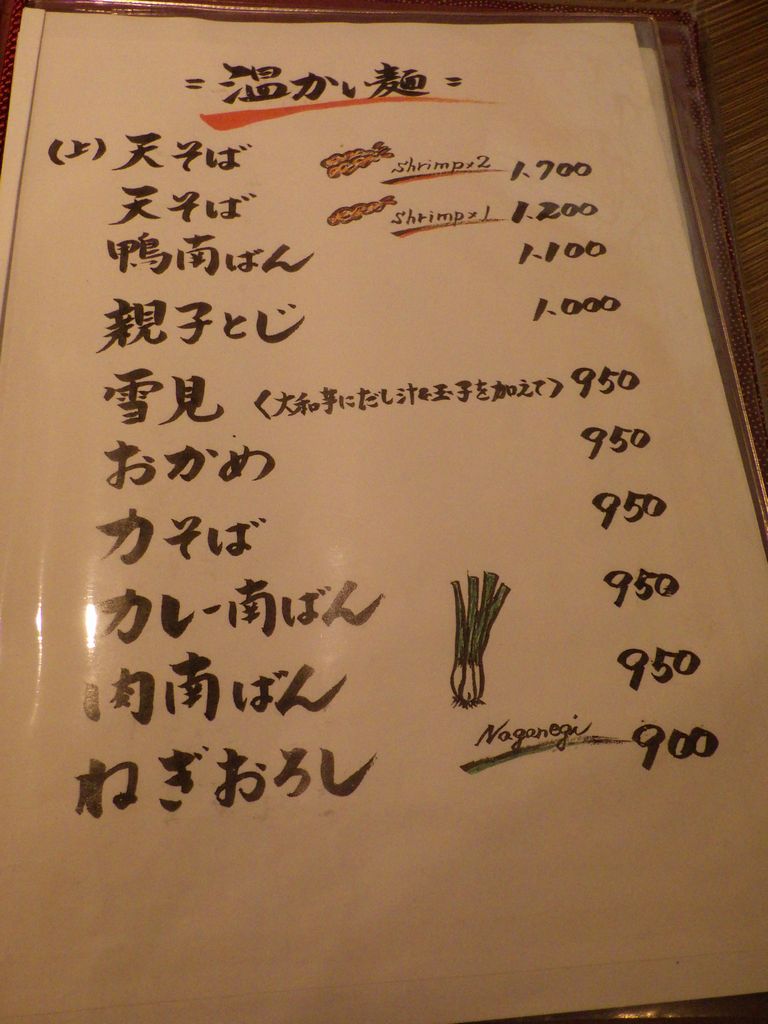 = 温かい麺 =
(上) 天そば shrimp×2 1,700
天そば shrimp×1 1,200
鴨南ばん 1,100
親子とじ 1,000
雪見 〈大和芋にだし汁と玉子を加えて〉 950
おかめ 950
力そば 950
カレー南ばん 950
肉南ばん 950
ねぎおろし Naganegi 900